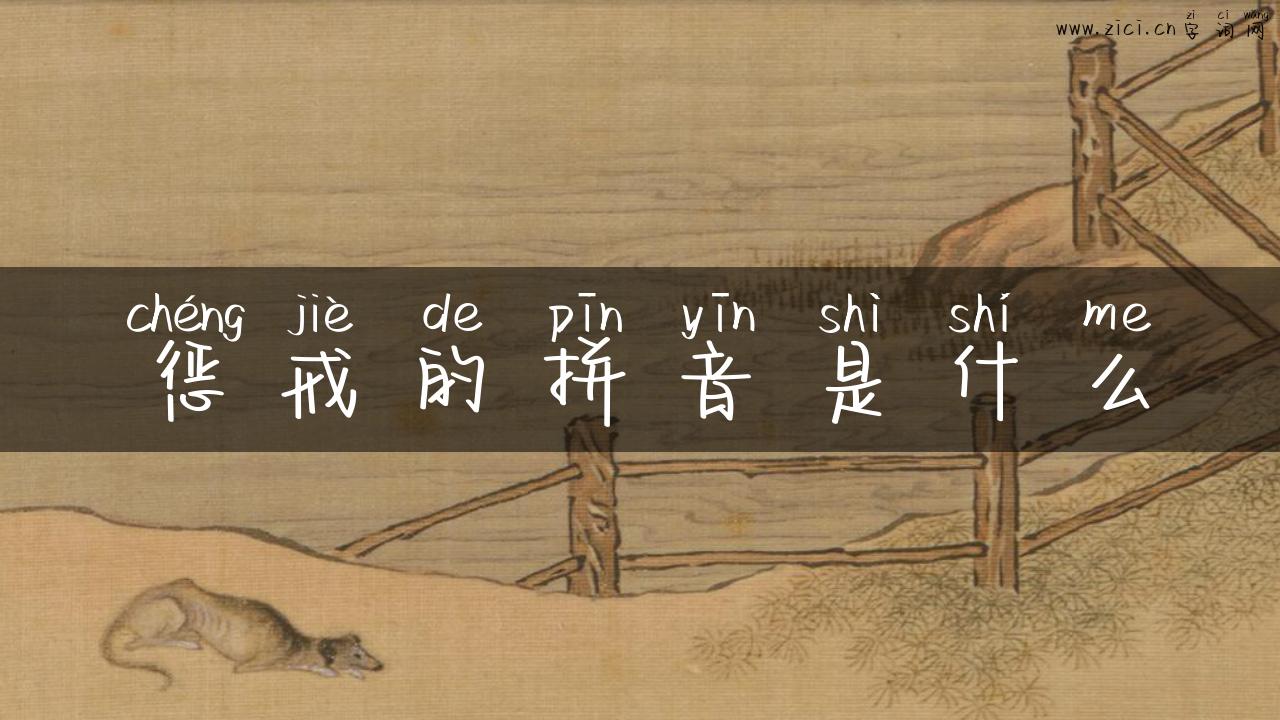 zì cí wǎng
www.zici.cn 字词网
chéng jiè de pīn yīn shì shí me
惩戒的拼音是什么